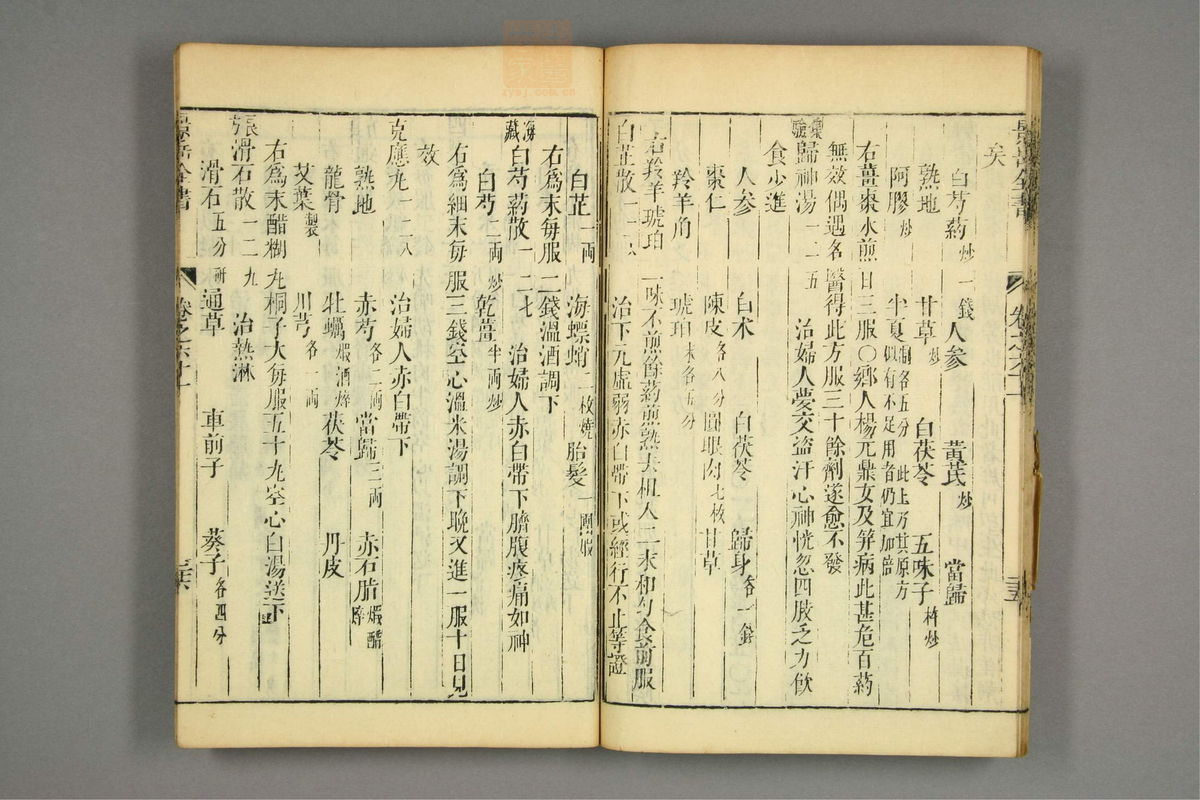 景岳全書
卷之六十一
三十五
矣
白芍藥炒一錢 人參 黃芪炒 當歸
熟地 甘草炒 白茯苓 五味子杵炒
阿膠炒 半夏製各五分 此上方其原方似有不足用者仍宜加倍
右薑棗水煎日三服○鄉人楊元鼎女及笄病此甚危百藥
無效偶遇名醫得此方服三十餘劑遂愈不發
集驗歸神湯一二五 治婦人夢交盜汗心神恍忽四肢乏力飲
食少進
人參 白朮 白茯苓 歸身各一錢
棗仁 陳皮各八分 圓眼肉七枚 甘草
羚羊角 琥珀末各五分
右羚羊琥珀二味不煎餘藥煎熟去柤入二末和勻食前服
白芷散一二六 治下元虛弱赤白帶下或經行不止等證
白芷一兩 海螵蛸二枚燒 胎髮一團煅
右爲末每服二錢溫酒調下
海藏白芍藥散一二七 治婦人赤白帶下臍腹疼痛如神
白芍二兩炒 乾薑半兩炒
右爲細末每服三錢空心溫米湯調下晚又進一服十日見
效
克應丸一二八 治婦人赤白帶下
熟地 赤芍各二兩 當歸二兩 赤石脂煅醋淬
龍骨 牡蠣煅酒淬 茯苓 丹皮
艾葉製 川芎各一兩
右爲末醋糊丸桐子大每服五十九空心白湯送下
張滑石散一二九 治熱淋
滑石五分研 通草 車前子 葵子各四分
景岳全書
卷之六十一
三十六